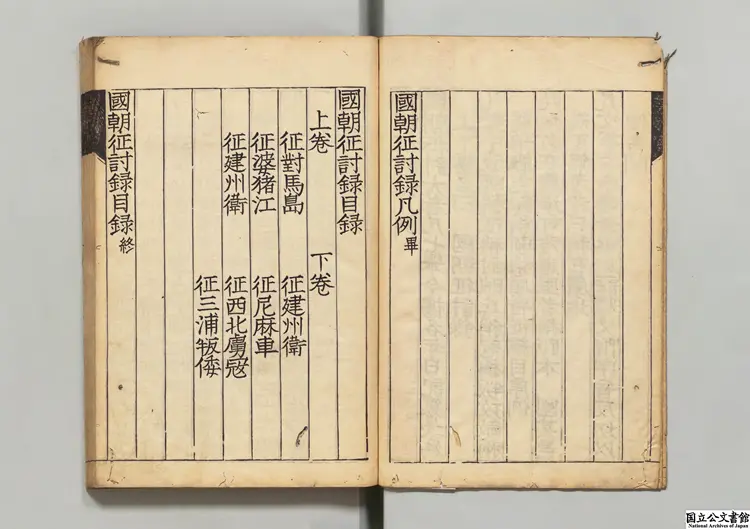 國朝征討録凡例畢
國朝征討録目録
上卷 下卷
征對馬島 征建州衛
征婆猪江 征尼麻車
征建州衛 征西北虜寇
征三浦叛倭
國朝征討録目録終
国立公文書館
National Archives of Japan